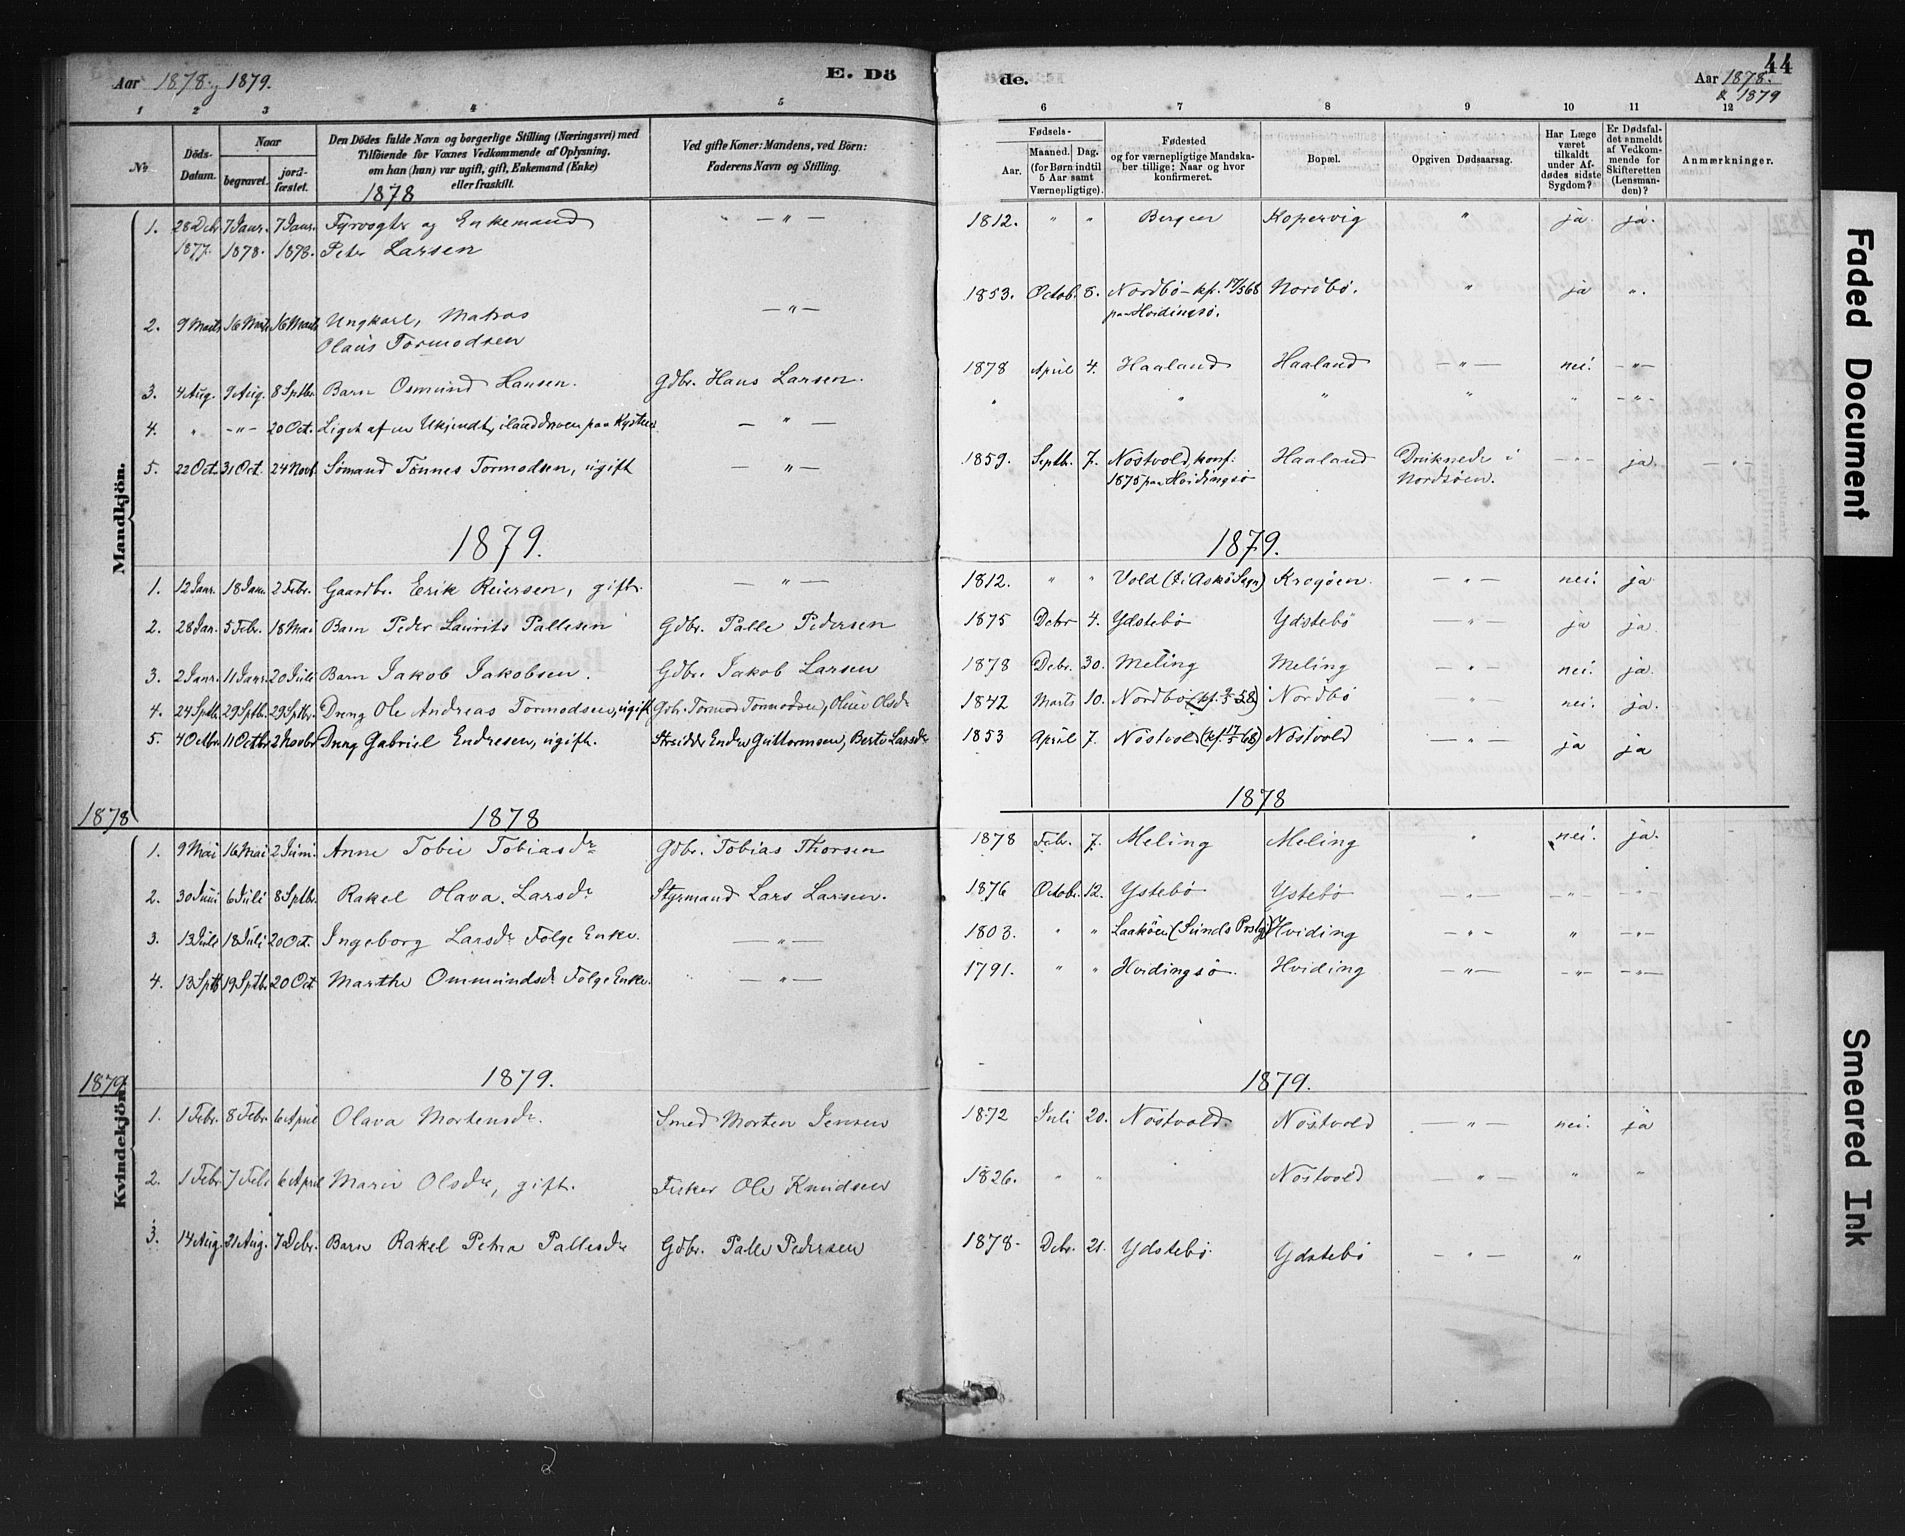 Aar 1878 & 1879.
E. Dö
de.
44
Aar 1878.
& 1879
1 2 3 4 5 6 7 8 9 10 11 12
No
Döds-Datum.
Naar
begravet.
jord-fæstet.
Den Dödes fulde Navn og borgerlige Stilling (Næringsvei) med
Tilföiende for Voxnes Vedkommende af Oplysning,
om han (hun) var ugift, gift, Enkemand (Enke)
eller fraskilt.
Ved gifte Koner: Mandens, ved Börn:
Faderens Navn og Stilling.
Fødsels-
Aar.
Maaned. Dag.
(for Børn indtil
5 Aar samt
Værnepligtige).
Fødested
og for værnepligtige Mandska-
ber tillige: Naar og hvor
konfirmeret.
Bopæl.
Opgiven Dødsaarsag.
Har Læge
været
tilkaldt
under Af-
dødes sidste
Sygdom?
Er Dødsfal-
det anmeldt
af Vedkom-
mende for
Skifteretten
(Lensman-
den)?
Anmærkninger.
Mandkjön.
1878
1. 28 Dcbr 7 Janr. 7 Janr. Fyrvogter og Enkemand — " — 1812. " " Bergen Kopervig " ja. ja.
1877. 1878. 1878. Peter Larsen
2. 9 Marts 16 Marts 16 Marts Ungkarl, Matros — " — 1853. Octob. 8. Nordbø – kf. 17/5 68 Nordbø. " ja ".
Olaus Tormodsen paa Hvidingsø.
3. 4 Aug. 9 Aug. 8 Septbr. Barn Osmund Hansen. Gdbr. Hans Larsen. 1878 April 4. Haaland Haaland — " — nei. — " —
4. " — " — 20 Oct. Liget af en Ukjendt, ilanddreven paa Kysten — " — " " " " " — " —
5. 22 Oct. 31 Oct. 24 Novb. Sømand Tønnes Tormodsen, ugift — " — 1859. Septb. 7. Nostvold, konf. Haaland Druknede i — " — ja. — " —
1875 paa Hvidingsø Nordsøen.
1879. 1879.
1. 12 Janr. 18 Janr. 2 Febr. Gaardbr. Erik Reiersen, gift. — " — 1812. " " Vold ( Askø Sogn) Krogøen. — " — nei. ja
2. 28 Jan. 5 Febr. 18 Mai Barn Peder Laurits Pallesen Gdbr. Palle Pedersen 1875 Debr 4. Ydstebø Ydstebø — " — ja ja.
3. 2 Janr. 11 Janr. 20 Juli Barn Jakob Jakobsen. Gdbr. Jakob Larsen 1878 Debr. 30. Meling Meling — " — nei. ja.
4. 24 Septb. 29 Septb. 29 Septbr. Dreng Ole Andreas Tormodsen, ugift Gdbr. Tormod Tormodsen, Oline Olsdr 1842 Marts 10. Nordbø Nordbø — " — nei. ja.
5. 4 Octbr. 11 Octbr. 2 Novbr Dreng Gabriel Endresen, ugift. Endre Guttormsen, Berte Larsdr 1853 April 7. Nostvold (kf. 17/5 68) Nostvold — " — ja ja
1878 1878 1878
Kvindekjön.
1. 9 Mai 16 Mai 2 Juni. Anne Tobie Tobiasdr Gdbr. Tobias Thorsen 1878 Febr. 7. Meling Meling " nei. ja.
2. 30 Juni 6 Juli 8 Septbr. Rakel Olava Larsdr Styrmand Lars Larsen. 1876 Octobr. 12. Ystebø Ystebø — " — — " — — " —
3. 13 Juli 18 Juli 20 Oct. Ingeborg Larsdr Følge Enke. — " — 1803. " " Laakøen (Sunds Prstg) Hviding — " — " — " —
4. 13 Septb 19 Septbr. 20 Oct Marthe Ommundsdr Følge Enke. — " — 1791. " " Hvidingsø. Hviding — " — — " — — " —
1879 1879. 1879.
1. 1 Febr. 8 Febr. 6 April Olava Mortensdr. Smed Morten Jensen 1872 Juli 20. Nostvold. Nostvold — " — nei. ja
2. 1 Febr 7 Feb 6 April Maren Olsdr, gift. Fisker Ole Knudsen 1826. " " Nostvold — " — " "
3. 14 Aug. 21 Aug. 7 Debr. Barn Rakel Petra Pallesdr Gdbr. Palle Pedersen 1878. Debr. 21. Ydstebø. Ydstebø — " — "
Faded Document
Smeared Ink